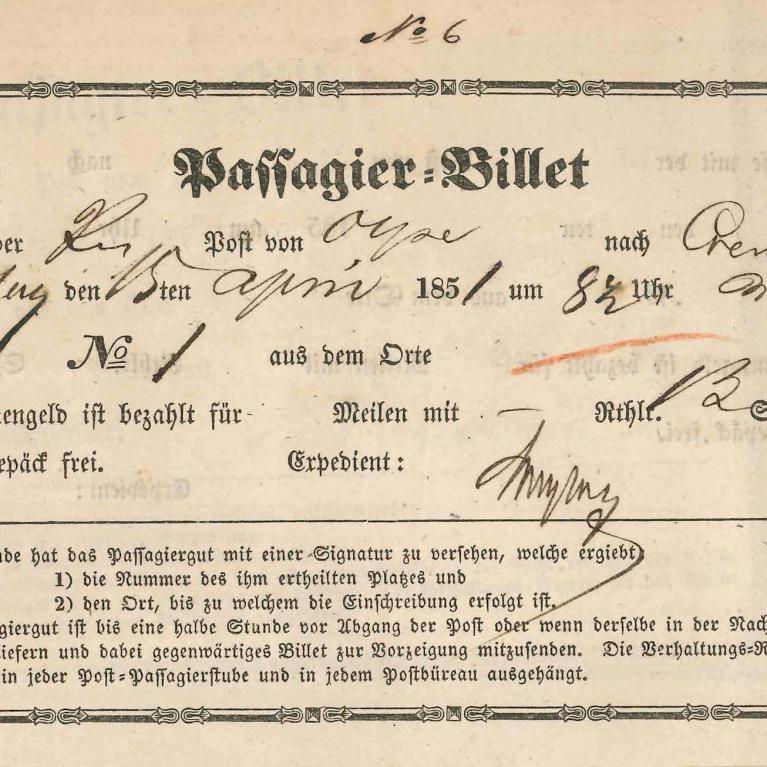 No 6
Passagier-Billet
Post von Oype nach
den 15ten April 1851 um 8½ Uhr
No 1 aus dem Orte
engeld ist bezahlt für - Meilen mit — Rthlr. 12 S
epäck frei. Expedient:
nde hat das Passagiergut mit einer Signatur zu versehen, welche ergiebt,
1) die Nummer des ihm ertheilten Platzes und
2) den Ort, bis zu welchem die Einschreibung erfolgt ist.
giergut ist bis eine halbe Stunde vor Abgang der Post oder wenn derselbe in der Nach
liefern und dabei gegenwärtiges Billet zur Vorzeigung mitzusenden. Die Verhaltungs-R
in jeder Post-Passagierstube und in jedem Postbüreau ausgehängt.